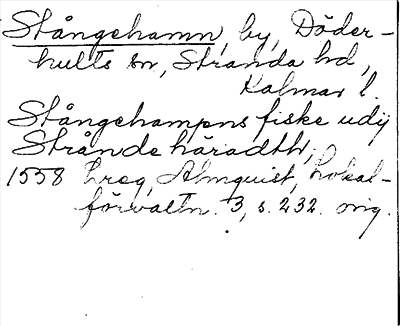 Stångehamn, by, Döder-
hults sn, Stranda hd,
Kalmar l.
Stångehampns fiske udij
Strånde häradth,
1558 Lreg, Almquist, Lokal-
förvaltn. 3, s. 232. orig.